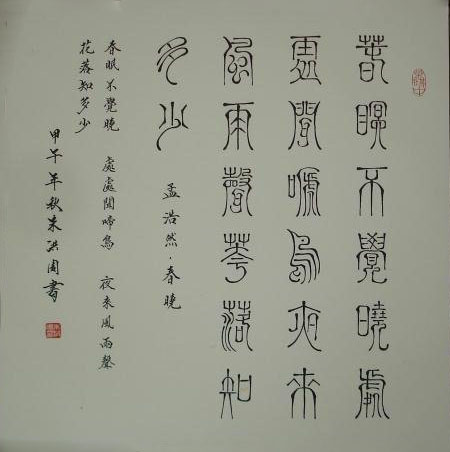 春眠不覺曉處
處聞啼鳥夜來
風雨聲華落知
多少
孟浩然·春晓
春眠不覺晓 處處聞啼鳥 夜来風雨聲
花落知多少
甲午年秋朱洪周書